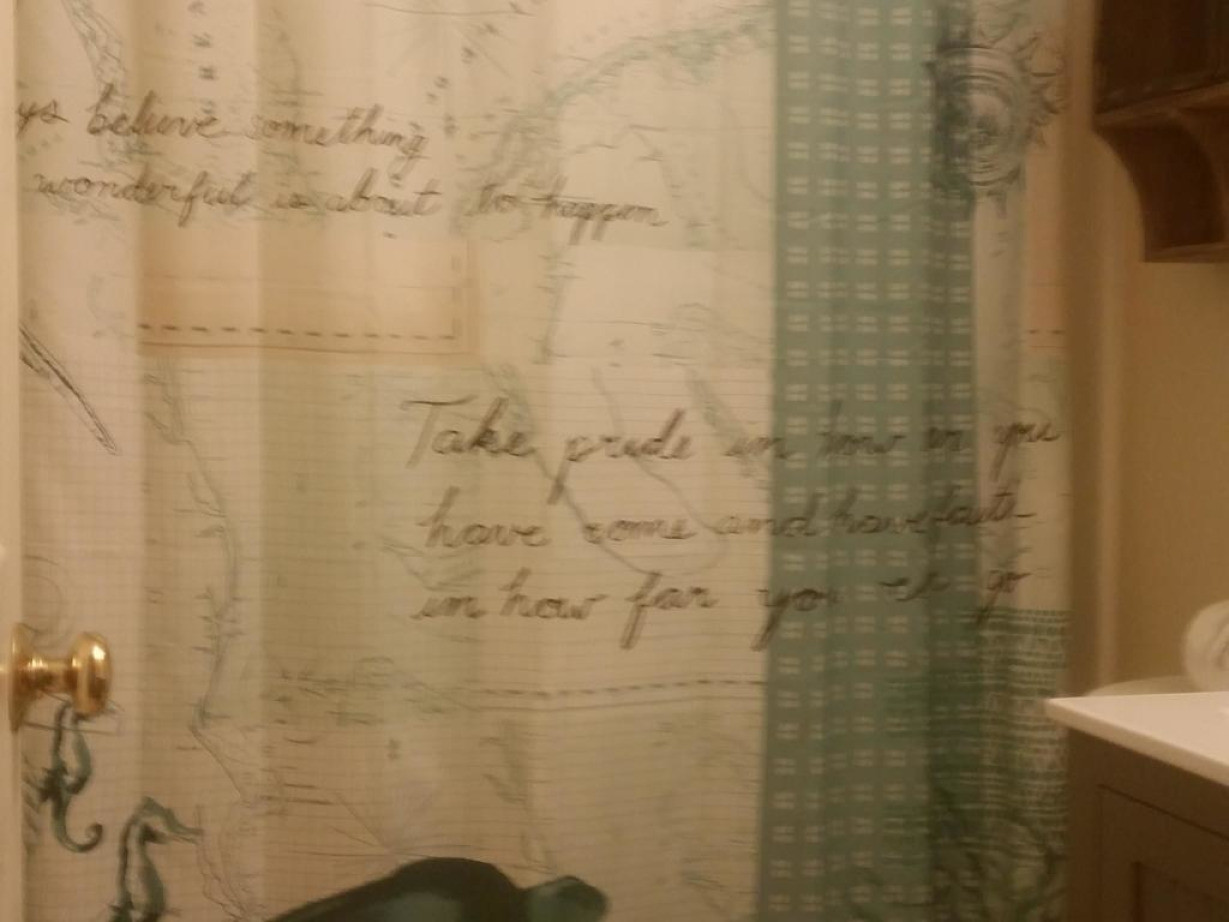 ys believe something
wonderful is about to happen
Take pride in how far you
have come and have faith
in how far you can go